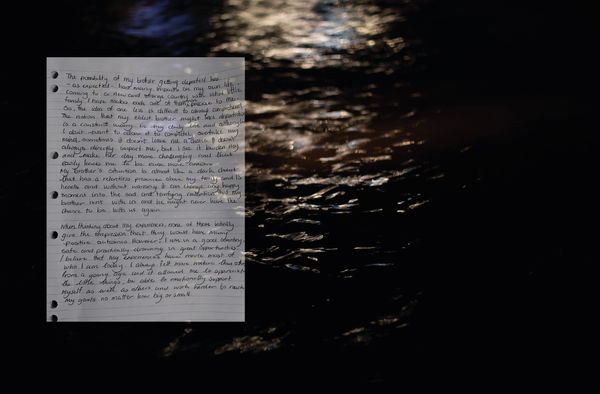 The possibility of my brother getting deported has
- as expected - had many impacts on my own life.
coming to a new and strange country with what little
family I have makes each one of them precise to me.
So, the idea of one less is difficult to always comprehend.
The notion that my eldest brother might face deportation
is a constant worry in my daily life and although
I don't want to allow it to completely overtake my
mind, sometimes it doesn't leave me a choice. It doesn't
always directly impact me, but I see it burden my
and make her day more challenging and that
easily leads me to be even more
My brother's situation is almost like a dark cloud
that has a relentless presence above my family and its
hectic and without warning it can change any happy
moment into the sad and terrifying realization that my
brother isn't with us and he might never have the
chance to be with us again.
When thinking about my experiences, none of them initially
give the impression that they would have many
positive outcomes. However, I am in a good country,
safe and practically drowning in great opportunities.
I believe that my experiences have made most of
who I am today. I always felt more mature than others
from a young age and it allowed me to appreciate
the little things, be able to emotionally support
myself as well as others and work harder to reach
my goals no matter how big or small.